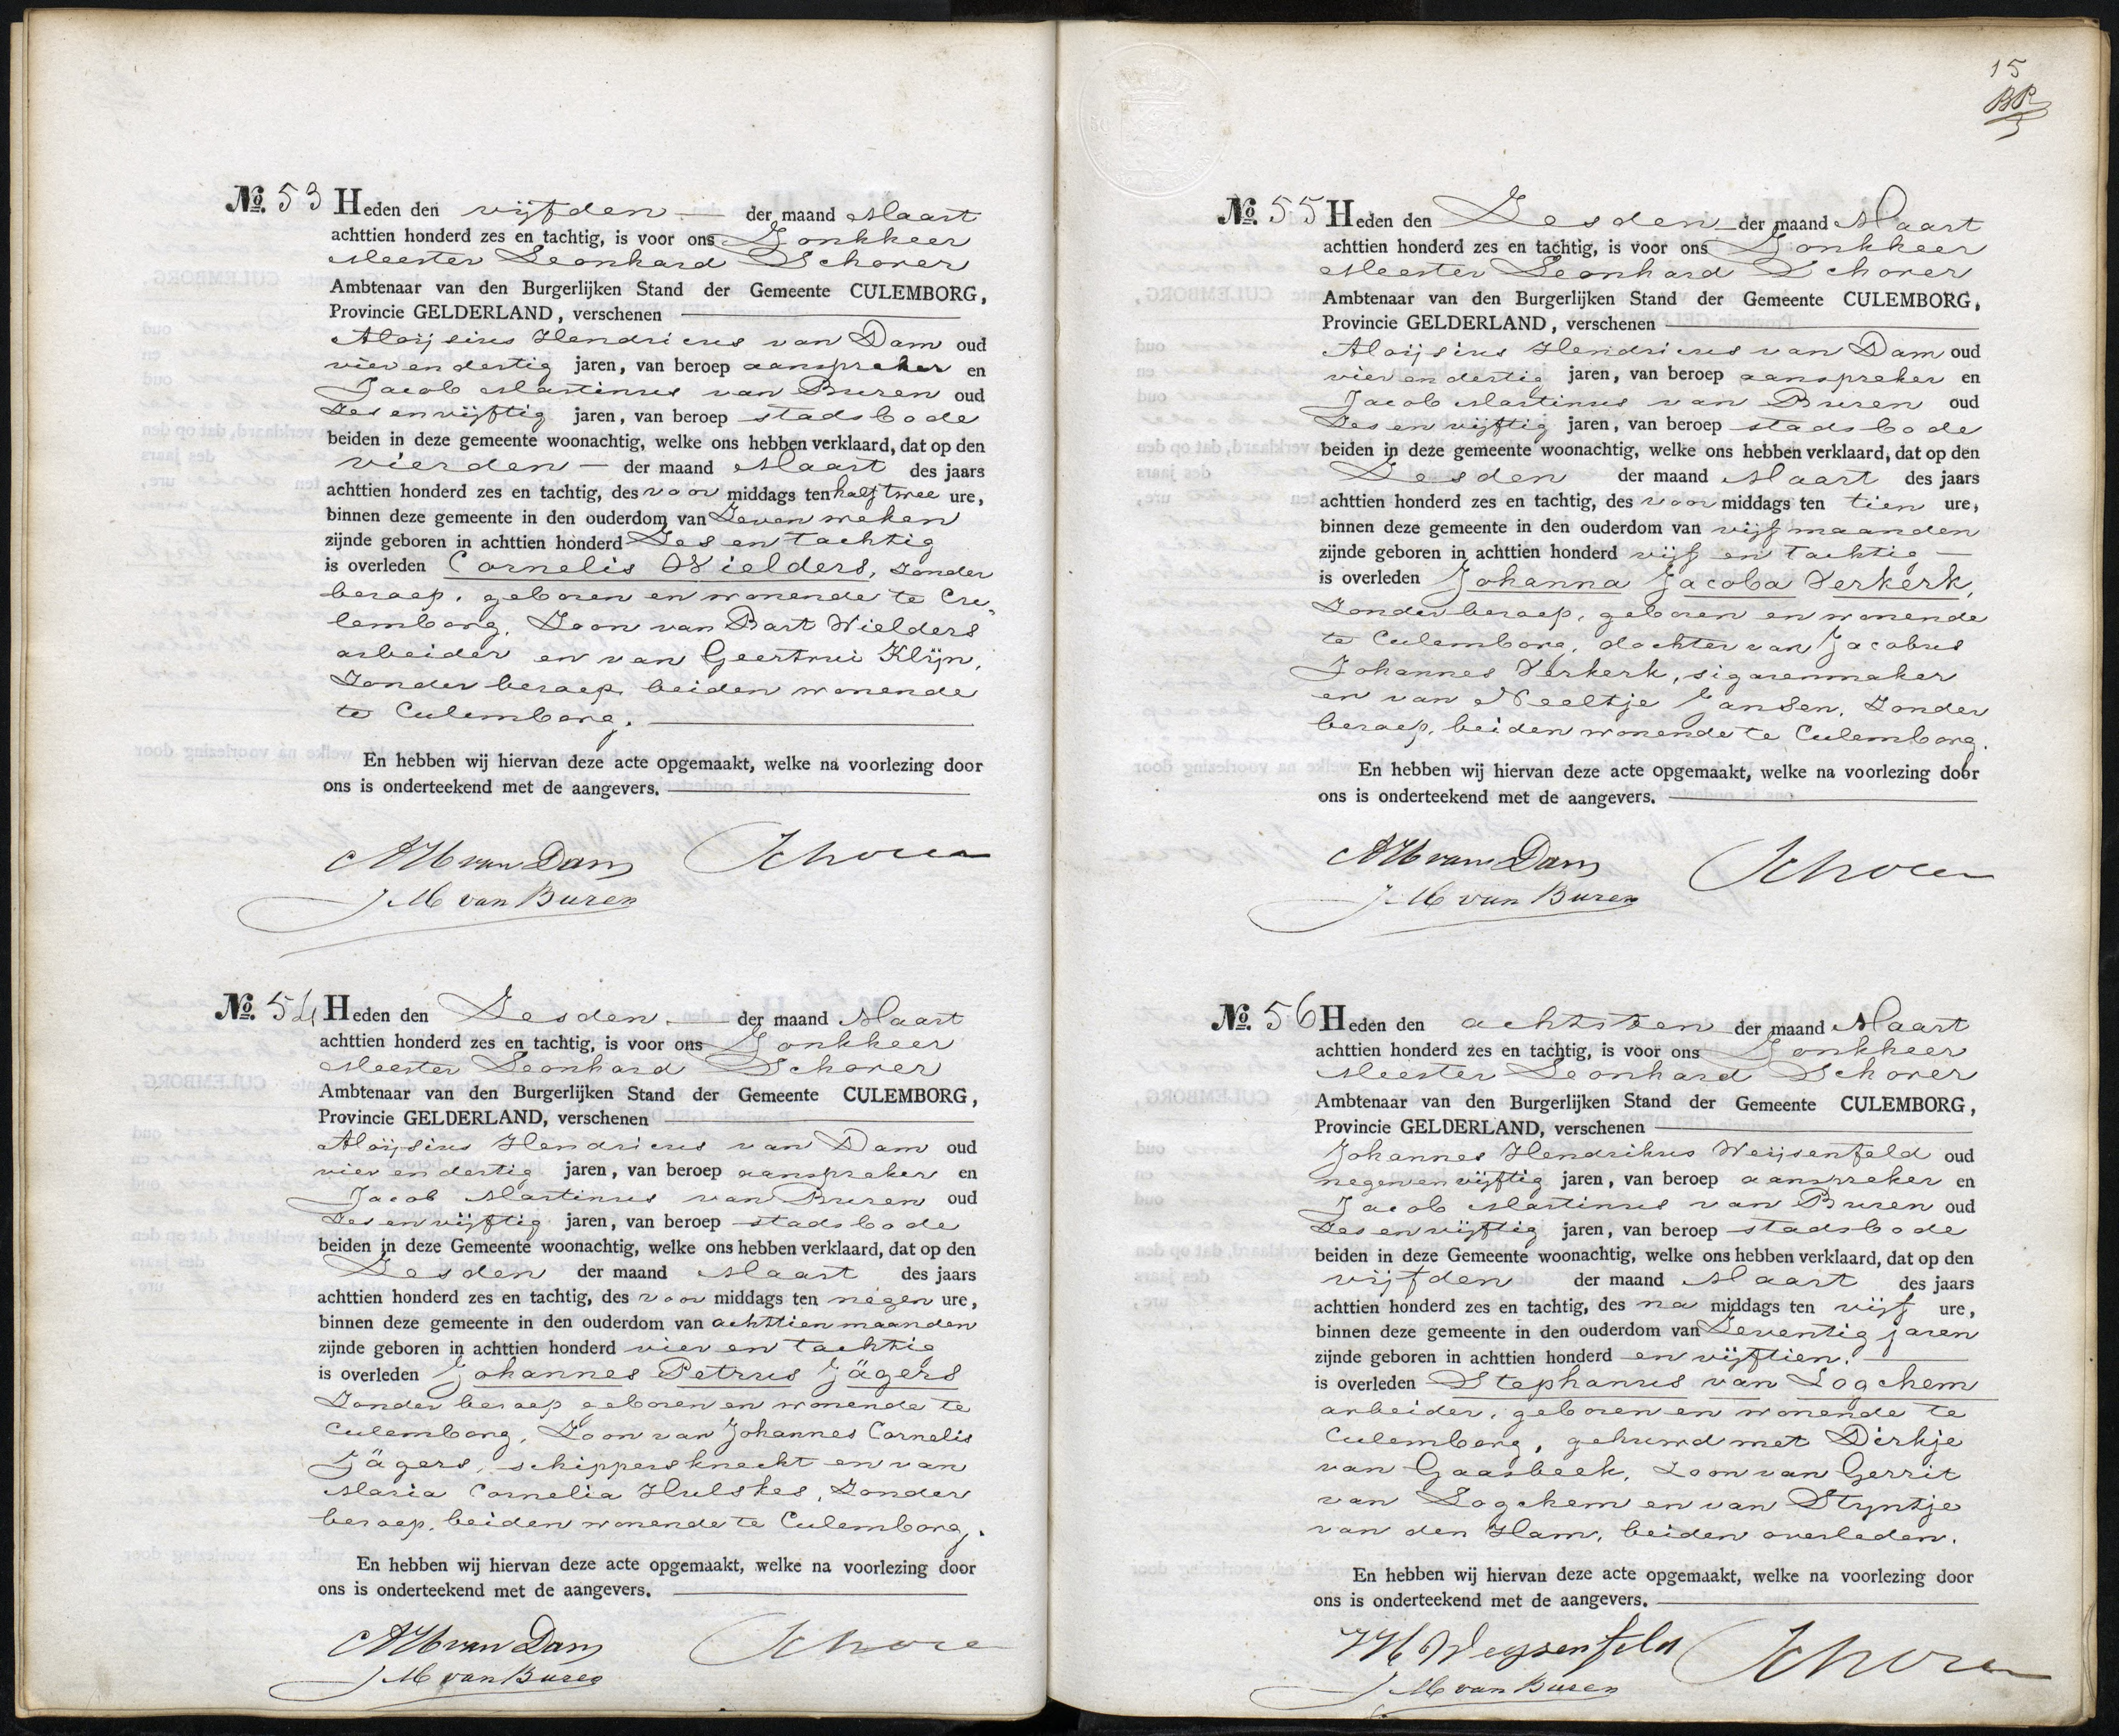 No. 53 Heden den vijfden der maand Maart
achttien honderd zes en tachtig, is voor ons Jonkheer
Meester Leonhard Schorer
Ambtenaar van den Burgerlijken Stand der Gemeente CULEMBORG,
Provincie GELDERLAND, verschenen
Aloijsius Hendricus van Dam oud
vier en dertig jaren, van beroep aanspreker en
Jacob Martinus van Buren oud
Zes en vijftig jaren, van beroep stadsbode
beiden in deze gemeente woonachtig, welke ons hebben verklaard, dat op den
vierden der maand Maart des jaars
achttien honderd zes en tachtig, des voor middags ten half twee ure,
binnen deze gemeente in den ouderdom van Zeven weken
zijnde geboren in achttien honderd Zes en tachtig
is overleden Cornelis Wielders, zonder
beroep, geboren en wonende te Cu„
lemborg, Zoon van Bart Wielders
arbeider en van Geertrui Klijn,
Zonder beroep beiden wonende
te Culemborg.
En hebben wij hiervan deze acte opgemaakt, welke na voorlezing door
ons is onderteekend met de aangevers.
AH van Dam Schorer
J.M van Buren
No. 54 Heden den Zesden der maand Maart
achttien honderd zes en tachtig, is voor ons Jonkheer
Meester Leonhard Schorer
Ambtenaar van den Burgerlijken Stand der Gemeente CULEMBORG,
Provincie GELDERLAND, verschenen
Aloijsius Hendricus van Dam oud
vier en dertig jaren, van beroep aanspreker en
Jacob Martinus van Buren oud
Zes en vijftig jaren, van beroep stadsbode
beiden in deze Gemeente woonachtig, welke ons hebben verklaard, dat op den
Zesden der maand Maart des jaars
achttien honderd zes en tachtig, des voor middags ten negen ure,
binnen deze gemeente in den ouderdom van achttien maanden
zijnde geboren in achttien honderd vier en tachtig
is overleden Johannes Petrus Jägers
Zonder beroep geboren en wonende te
Culemborg, Zoon van Johannes Cornelis
Jägers, schippersknecht en van
Maria Cornelia Hulskes, Zonder
beroep, beiden wonende te Culemborg.
En hebben wij hiervan deze acte opgemaakt, welke na voorlezing door
ons is onderteekend met de aangevers.
AH van Dam Schorer
J.M van Buren
15
No. 55 Heden den Zesden der maand Maart
achttien honderd zes en tachtig, is voor ons Jonkheer
Meester Leonhard Schorer
Ambtenaar van den Burgerlijken Stand der Gemeente CULEMBORG,
Provincie GELDERLAND, verschenen
Aloijsius Hendricus van Dam oud
vier en dertig jaren, van beroep aanspreker en
Jacob Martinus van Buren oud
Zes en vijftig jaren, van beroep stadsbode
beiden in deze gemeente woonachtig, welke ons hebben verklaard, dat op den
Zesden der maand Maart des jaars
achttien honderd zes en tachtig, des voor middags ten tien ure,
binnen deze gemeente in den ouderdom van vijf maanden
zijnde geboren in achttien honderd vijf en tachtig
is overleden Johanna Jacoba Verkerk,
Zonder beroep, geboren en wonende
te Culemborg, dochter van Jacobus
Johannes Verkerk, sigarenmaker
en van Neeltje Jansen, Zonder
beroep, beiden wonende te Culemborg.
En hebben wij hiervan deze acte opgemaakt, welke na voorlezing door
ons is onderteekend met de aangevers.
AH van Dam Schorer
J.M van Buren
No. 56 Heden den achtsten der maand Maart
achttien honderd zes en tachtig, is voor ons Jonkheer
Meester Leonhard Schorer
Ambtenaar van den Burgerlijken Stand der Gemeente CULEMBORG,
Provincie GELDERLAND, verschenen
Johannes Hendrikus Weijsenfeld oud
negen en vijftig jaren, van beroep aanspreker en
Jacob Martinus van Buren oud
Zes en vijftig jaren, van beroep stadsbode
beiden in deze Gemeente woonachtig, welke ons hebben verklaard, dat op den
vijfden der maand Maart des jaars
achttien honderd zes en tachtig, des na middags ten vijf ure,
binnen deze gemeente in den ouderdom van Zeventig jaren
zijnde geboren in achttien honderd en vijftien.
is overleden Stephanus van Logchem
arbeider, geboren en wonende te
Culemborg, gehuwd met Dirkje
van Gaasbeek, Zoon van Gerrit
van Logchem en van Styntje
van den Ham, beiden overleden.
En hebben wij hiervan deze acte opgemaakt, welke na voorlezing door
ons is onderteekend met de aangevers.
JH Weijsenfeld Schorer
J.M van Buren